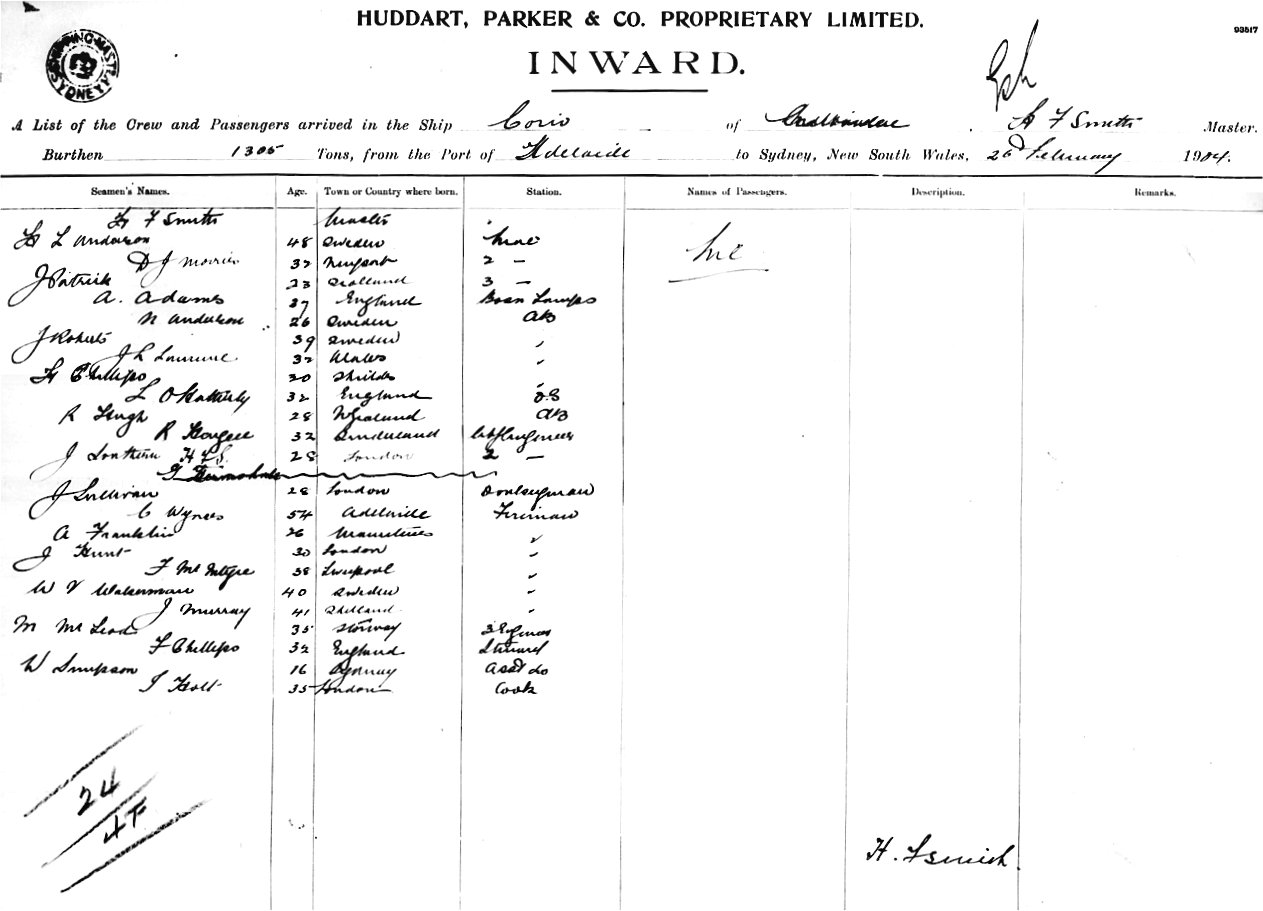 HUDDART, PARKER & CO. PROPRIETARY LIMITED.
93517
SHIPPING MASTER SYDNEY
INWARD.
A List of the Crew and Passengers arrived in the Ship Corio of H F Smith Master.
Burthen 1305 Tons, from the Port of Adelaide to Sydney, New South Wales, February 1904.
Seamen's Names. Age. Town or Country where born. Station. Names of Passengers. Description. Remarks.
H F Smith Master
H L Anderson 48 Sweden Mate
D J Morris 32 Newport 2 —
J Patrick 23 Scotland 3 —
A. Adams 37 England Bosn Lamps
N Anderson 26 Sweden AB
J Roberts 39 Sweden "
J L 32 Wales "
H Phillips 20 Shields "
L 32 England OS
R Hugh 28 AB
R 32 Sunderland Engineer
J 28 London 2 —
J Sullivan 28 London Donkeyman
C Wynes 54 Adelaide Fireman
A Franklin 26 Mauritius "
J Hunt 30 London "
F McIntyre 38 Liverpool "
W V 40 Sweden "
J Murray 41 "
M McLeod 35 3
F Phillips 32 England Steward
W Simpson 16 Asst do
J Holt 35 London Cook
24
4F
H. F Smith